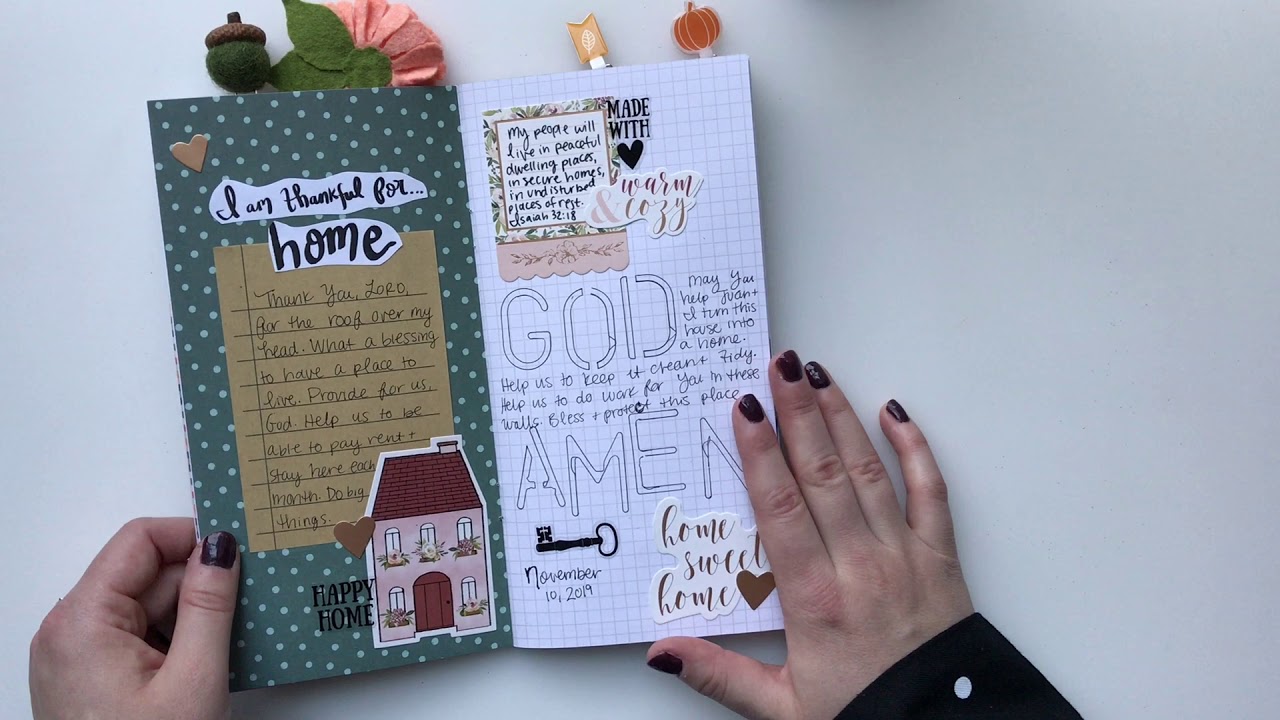 I am thankful for...
home
Thank You, LORD,
for the roof over my
head. What a blessing
to have a place to
live. Provide for us,
God. Help us to be
able to pay rent +
stay here each
month. Do big
things.
HAPPY
HOME
My people will
live in peaceful
dwelling places,
in secure homes,
in undisturbed
places of rest.
Isaiah 32:18
MADE
WITH
warm
& cozy
GOD
May You
help Juan +
I turn this
house into
a home.
Help us to keep it clean + tidy.
Help us to do work for You in these
walls. Bless + protect this place.
AMEN
home
sweet
home
November
10, 2019